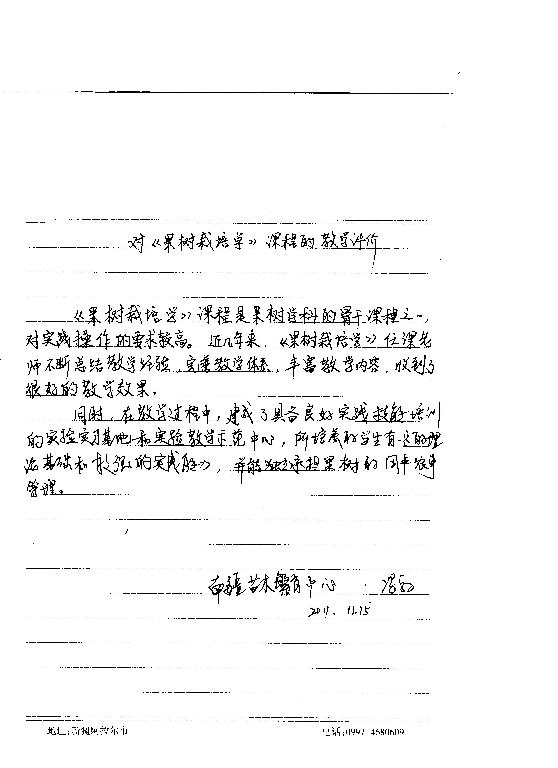 对《果树栽培学》课程的教学评价
《果树栽培学》课程是果树学科的骨干课程之一,
对实践操作的要求较高。近几年来,《果树栽培学》任课老
师不断总结教学经验,完善教学体系,丰富教学内容,收到了
很好的教学效果。
同时,在教学过程中,建成了具备良好实践技能培训
的实验实习基地和实验教学示范中心,所培养的学生有一定的理
论基础和较强的实践能力,并能独立承担果树的周年
管理。
南疆苗木繁育中心
2011.11.15
地址:新疆阿拉尔市
电话:0997-4680609